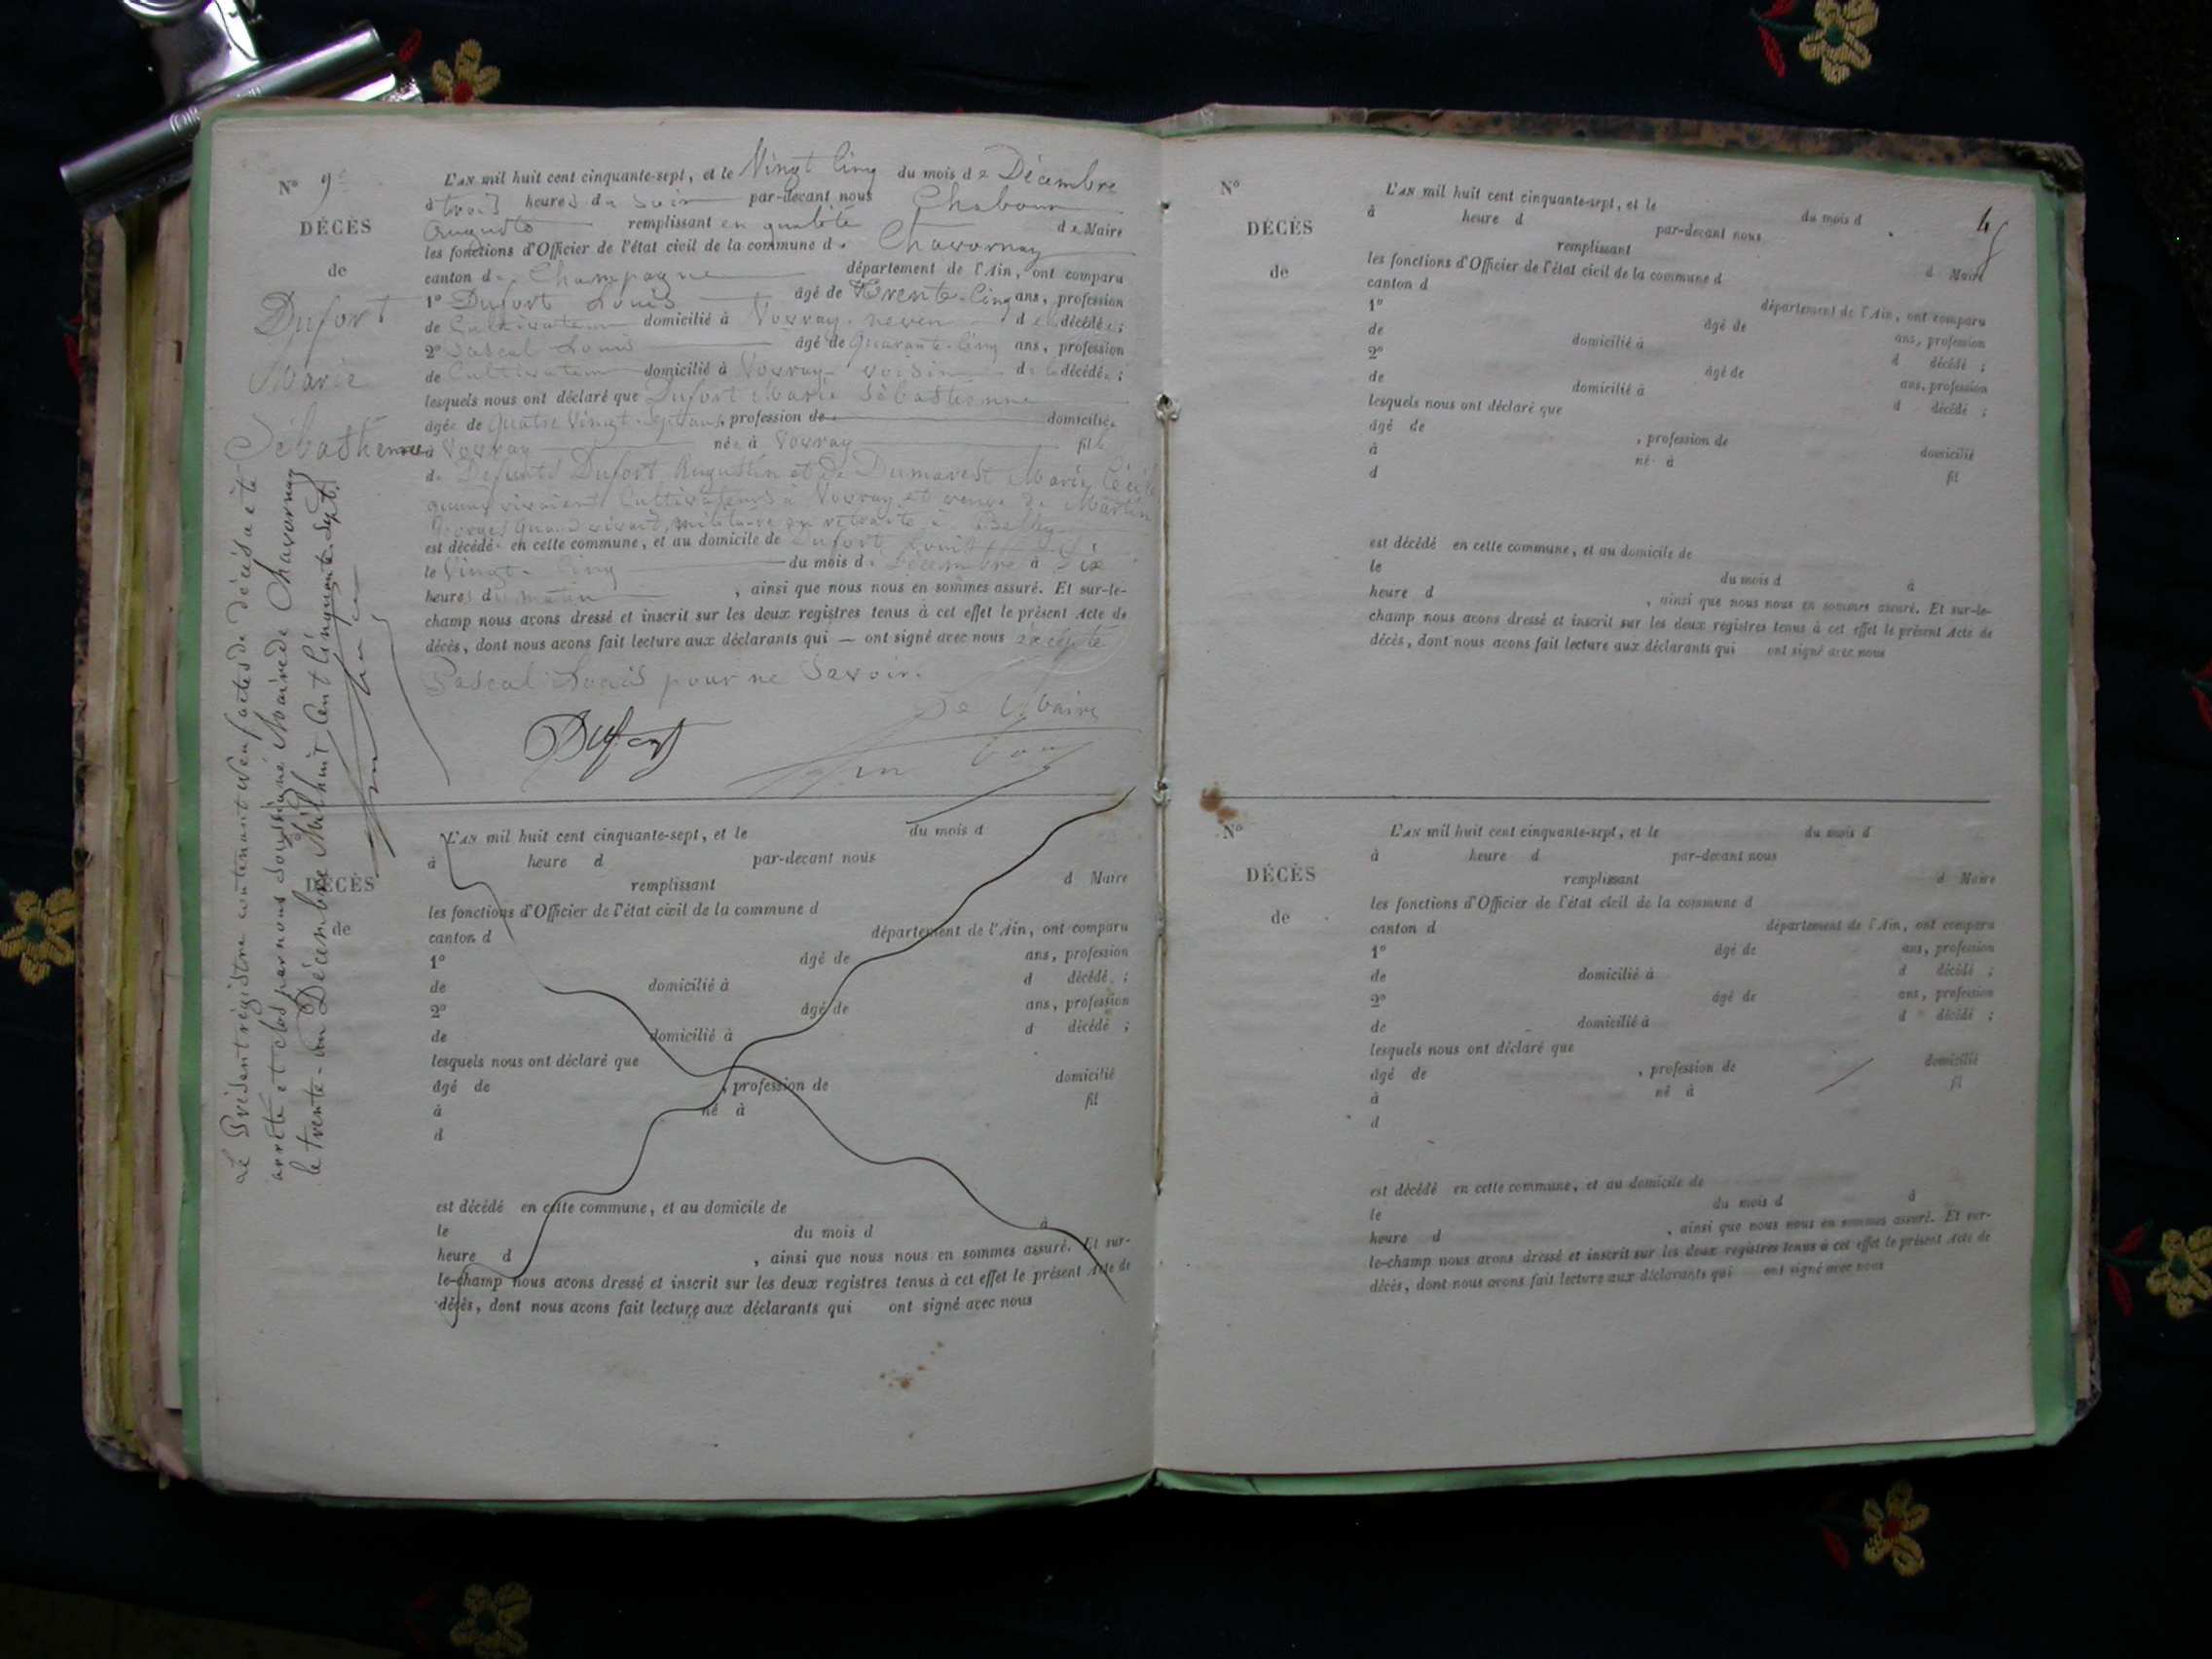 N° 9
DÉCÈS
de
Dufort
Marie
Sébastienne
L'AN mil huit cent cinquante-sept, et le Vingt Cinq du mois de Décembre
à trois heures du soir par-devant nous Chaboux
Auguste remplissant en qualité de Maire
les fonctions d'Officier de l'état civil de la commune de Chavornay
canton de Champagne département de l'Ain, ont comparu
1° Dufort Louis âgé de Trente-Cinq ans, profession
de Cultivateur domicilié à Vovray neveu de la décédée;
2° Pascal Louis âgé de Quarante-Cinq ans, profession
de Cultivateur domicilié à Vovray voisin de la décédée;
lesquels nous ont déclaré que Dufort Marie Sébastienne
âgée de Quatre Vingt-Sept ans, profession de domiciliée
à Vovray née à Vovray fille
de Défunts Dufort Augustin et de Dumarest Marie Cécile
quand vivaient Cultivateurs à Vovray et veuve de Martin
Georges Quand vivait, militaire en retraite à Belley
est décédée en cette commune, et au domicile de Dufort Louis
le Vingt-Cinq du mois de Décembre à Dix
heures du matin, ainsi que nous nous en sommes assuré. Et sur-le-
champ nous avons dressé et inscrit sur les deux registres tenus à cet effet le présent Acte de
décès, dont nous avons fait lecture aux déclarants qui — ont signé avec nous excepté
Pascal Louis pour ne Savoir.
Le Maire
Dufort
Le Présent registre contenant neuf actes de décès a été
arrêté et clos par nous Soussigné Maire de Chavornay
le trente-un Décembre Mil huit Cent Cinquante-Sept.
DÉCÈS
de
L'AN mil huit cent cinquante-sept, et le du mois d
à heure d par-devant nous
remplissant d Maire
les fonctions d'Officier de l'état civil de la commune d
canton d département de l'Ain, ont comparu
1° âgé de ans, profession
de domicilié à d décédé ;
2° âgé de ans, profession
de domicilié à d décédé ;
lesquels nous ont déclaré que
âgé de , profession de domicilié
à né à fil
d
est décédé en cette commune, et au domicile de
le du mois d à
heure d , ainsi que nous nous en sommes assuré. Et sur-
le-champ nous avons dressé et inscrit sur les deux registres tenus à cet effet le présent Acte de
décès, dont nous avons fait lecture aux déclarants qui ont signé avec nous
N°
DÉCÈS
de
L'AN mil huit cent cinquante-sept, et le du mois d
à heure d par-devant nous
remplissant d Maire
les fonctions d'Officier de l'état civil de la commune d
canton d département de l'Ain, ont comparu
1° âgé de ans, profession
de domicilié à d décédé ;
2° âgé de ans, profession
de domicilié à d décédé ;
lesquels nous ont déclaré que
âgé de , profession de domicilié
à né à fil
d
est décédé en cette commune, et au domicile de
le du mois d à
heure d , ainsi que nous nous en sommes assuré. Et sur-le-
champ nous avons dressé et inscrit sur les deux registres tenus à cet effet le présent Acte de
décès, dont nous avons fait lecture aux déclarants qui ont signé avec nous
N°
DÉCÈS
de
L'AN mil huit cent cinquante-sept, et le du mois d
à heure d par-devant nous
remplissant d Maire
les fonctions d'Officier de l'état civil de la commune d
canton d département de l'Ain, ont comparu
1° âgé de ans, profession
de domicilié à d décédé ;
2° âgé de ans, profession
de domicilié à d décédé ;
lesquels nous ont déclaré que
âgé de , profession de domicilié
à né à fil
d
est décédé en cette commune, et au domicile de
le du mois d à
heure d , ainsi que nous nous en sommes assuré. Et sur-
le-champ nous avons dressé et inscrit sur les deux registres tenus à cet effet le présent Acte de
décès, dont nous avons fait lecture aux déclarants qui ont signé avec nous